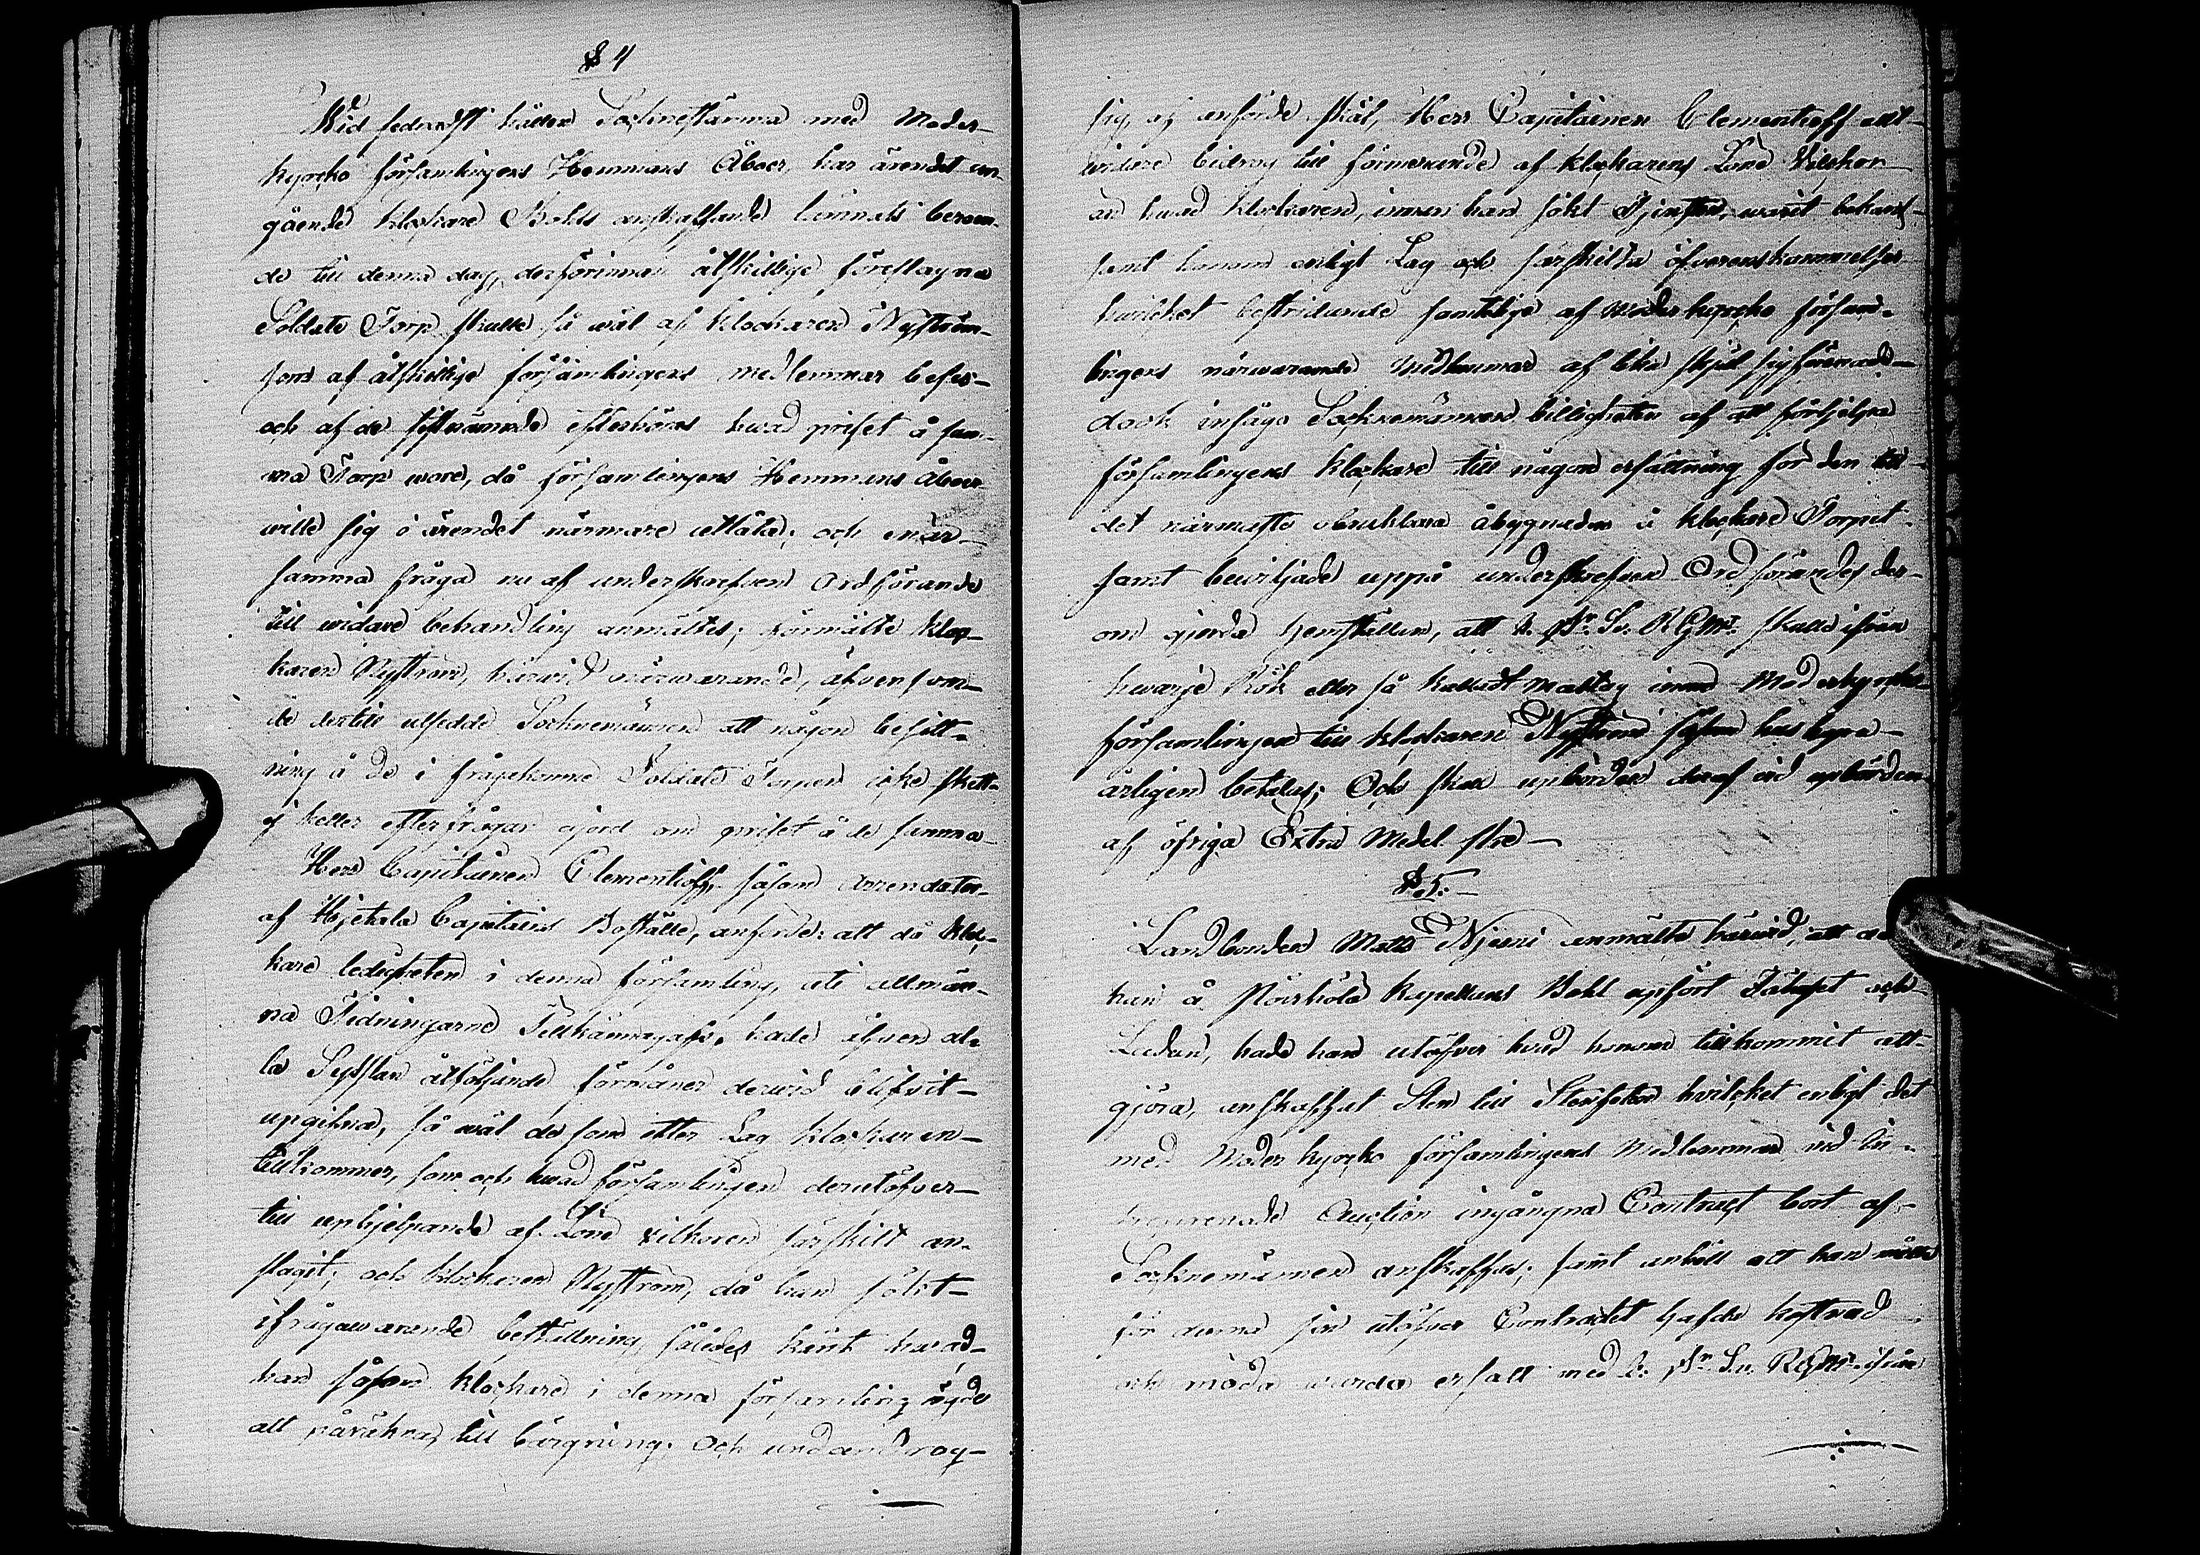 § 4
Wid sednast hållne Sockenstämma med Moder-
kyrcko församlingens Hemmans Åboer, har ärendet an-
gående klockare Bohls anskaffande lämnats beroen-
de till denna dag, derförinnan åtskillige föreslagna
Soldate Torp skulle så wäl af klockaren Nyström
som af åtskillige församlingens medlemmar beses-
och af de sistnämnde efterhöras hwad priset å sam-
ma Torp wore, då församlingens Hemmans Åboer
wille sig i ärendet närmare utlåta; och enär
samma fråga nu af underskrefven Ordförande
till widare behandling anmältes; förmälte kloc-
karen Nyström, härwid närwarande, äfvensom
de dertill utsedde Socknemännen att någon besitt-
ning å de i frågekomne Soldate Torpen icke skett-
ej heller efterfrågan gjord om priset å de samma
Herr Capitainen Clementeoff, såsom Arrendator
af Hjetala Capitains Boställe, anförde: att då kloc-
kare ledigheten i denna församling, uti allmän-
na Tidningarne Tillkännagafs, hade äfven al-
la Sysslan åtföljande förmåner derwid blifvit
upgifna, så wäl de som efter Lag klockaren
tillkommer, som och hwad församlingen derutöfver
till uphjelpande af Löne vilkoren särskilt an-
slagit; och klockaren Nyström, då han sökt
ifrågawarande beställning, således känt hwad
han såsom klockare i denna församling ägde
att påräkna, till bärgning. Och undandrog
sig, af anförde skäl, Herr Capitainen Clementeoff allt
widare bidrag till förmerande af klockarens Löne Vilkor
än hwad klockaren, innan han sökt Tjensten, warit bekant
samt honom enligt Lag och särskilta öfverenskommelser
hwilcket bestridande samtelige af Moderkyrcko försam-
lingens närwarande Medlemmar af lika skjäl sig förenade
dock insågo Socknemännen billigheten af att förhjelpa
församlingens klockare till någon ersättning för den till
det närmaste obrukbara åbygnaden å klockare Torpet
samt bewiljade uppå underskrefven Ordförandes der-
om gjorda hemställan, att 2. st. Sv. RGMt. skulle ifrån
hwarje Rök eller så kallad Matlag inom Moderkyrcko
församlingen till klockaren Nyström såsom hus hyra
årligen betalas; Och skall upbörden deraf vid upbörden
af öfriga Extra Medel ske
§ 5.
Landbonden Matts Njemi anmälte härwid, att då
han å Kapellans Bohl upfört och
Ladan, hade han utöfver hvad honom tillkommit att
gjöra, anskaffat Sten till Stenfoten hvilcket enligt det
med Moder kyrcko församlingens Medlemmar vid
Auction ingångna Contract bort af
Socknemännen anskaffas; samt anhöll att han måtte
för denna sin utöfver Contractet hafda kostnad
och möda warda ersatt med 2. st. Sv. RGMt. ifrån